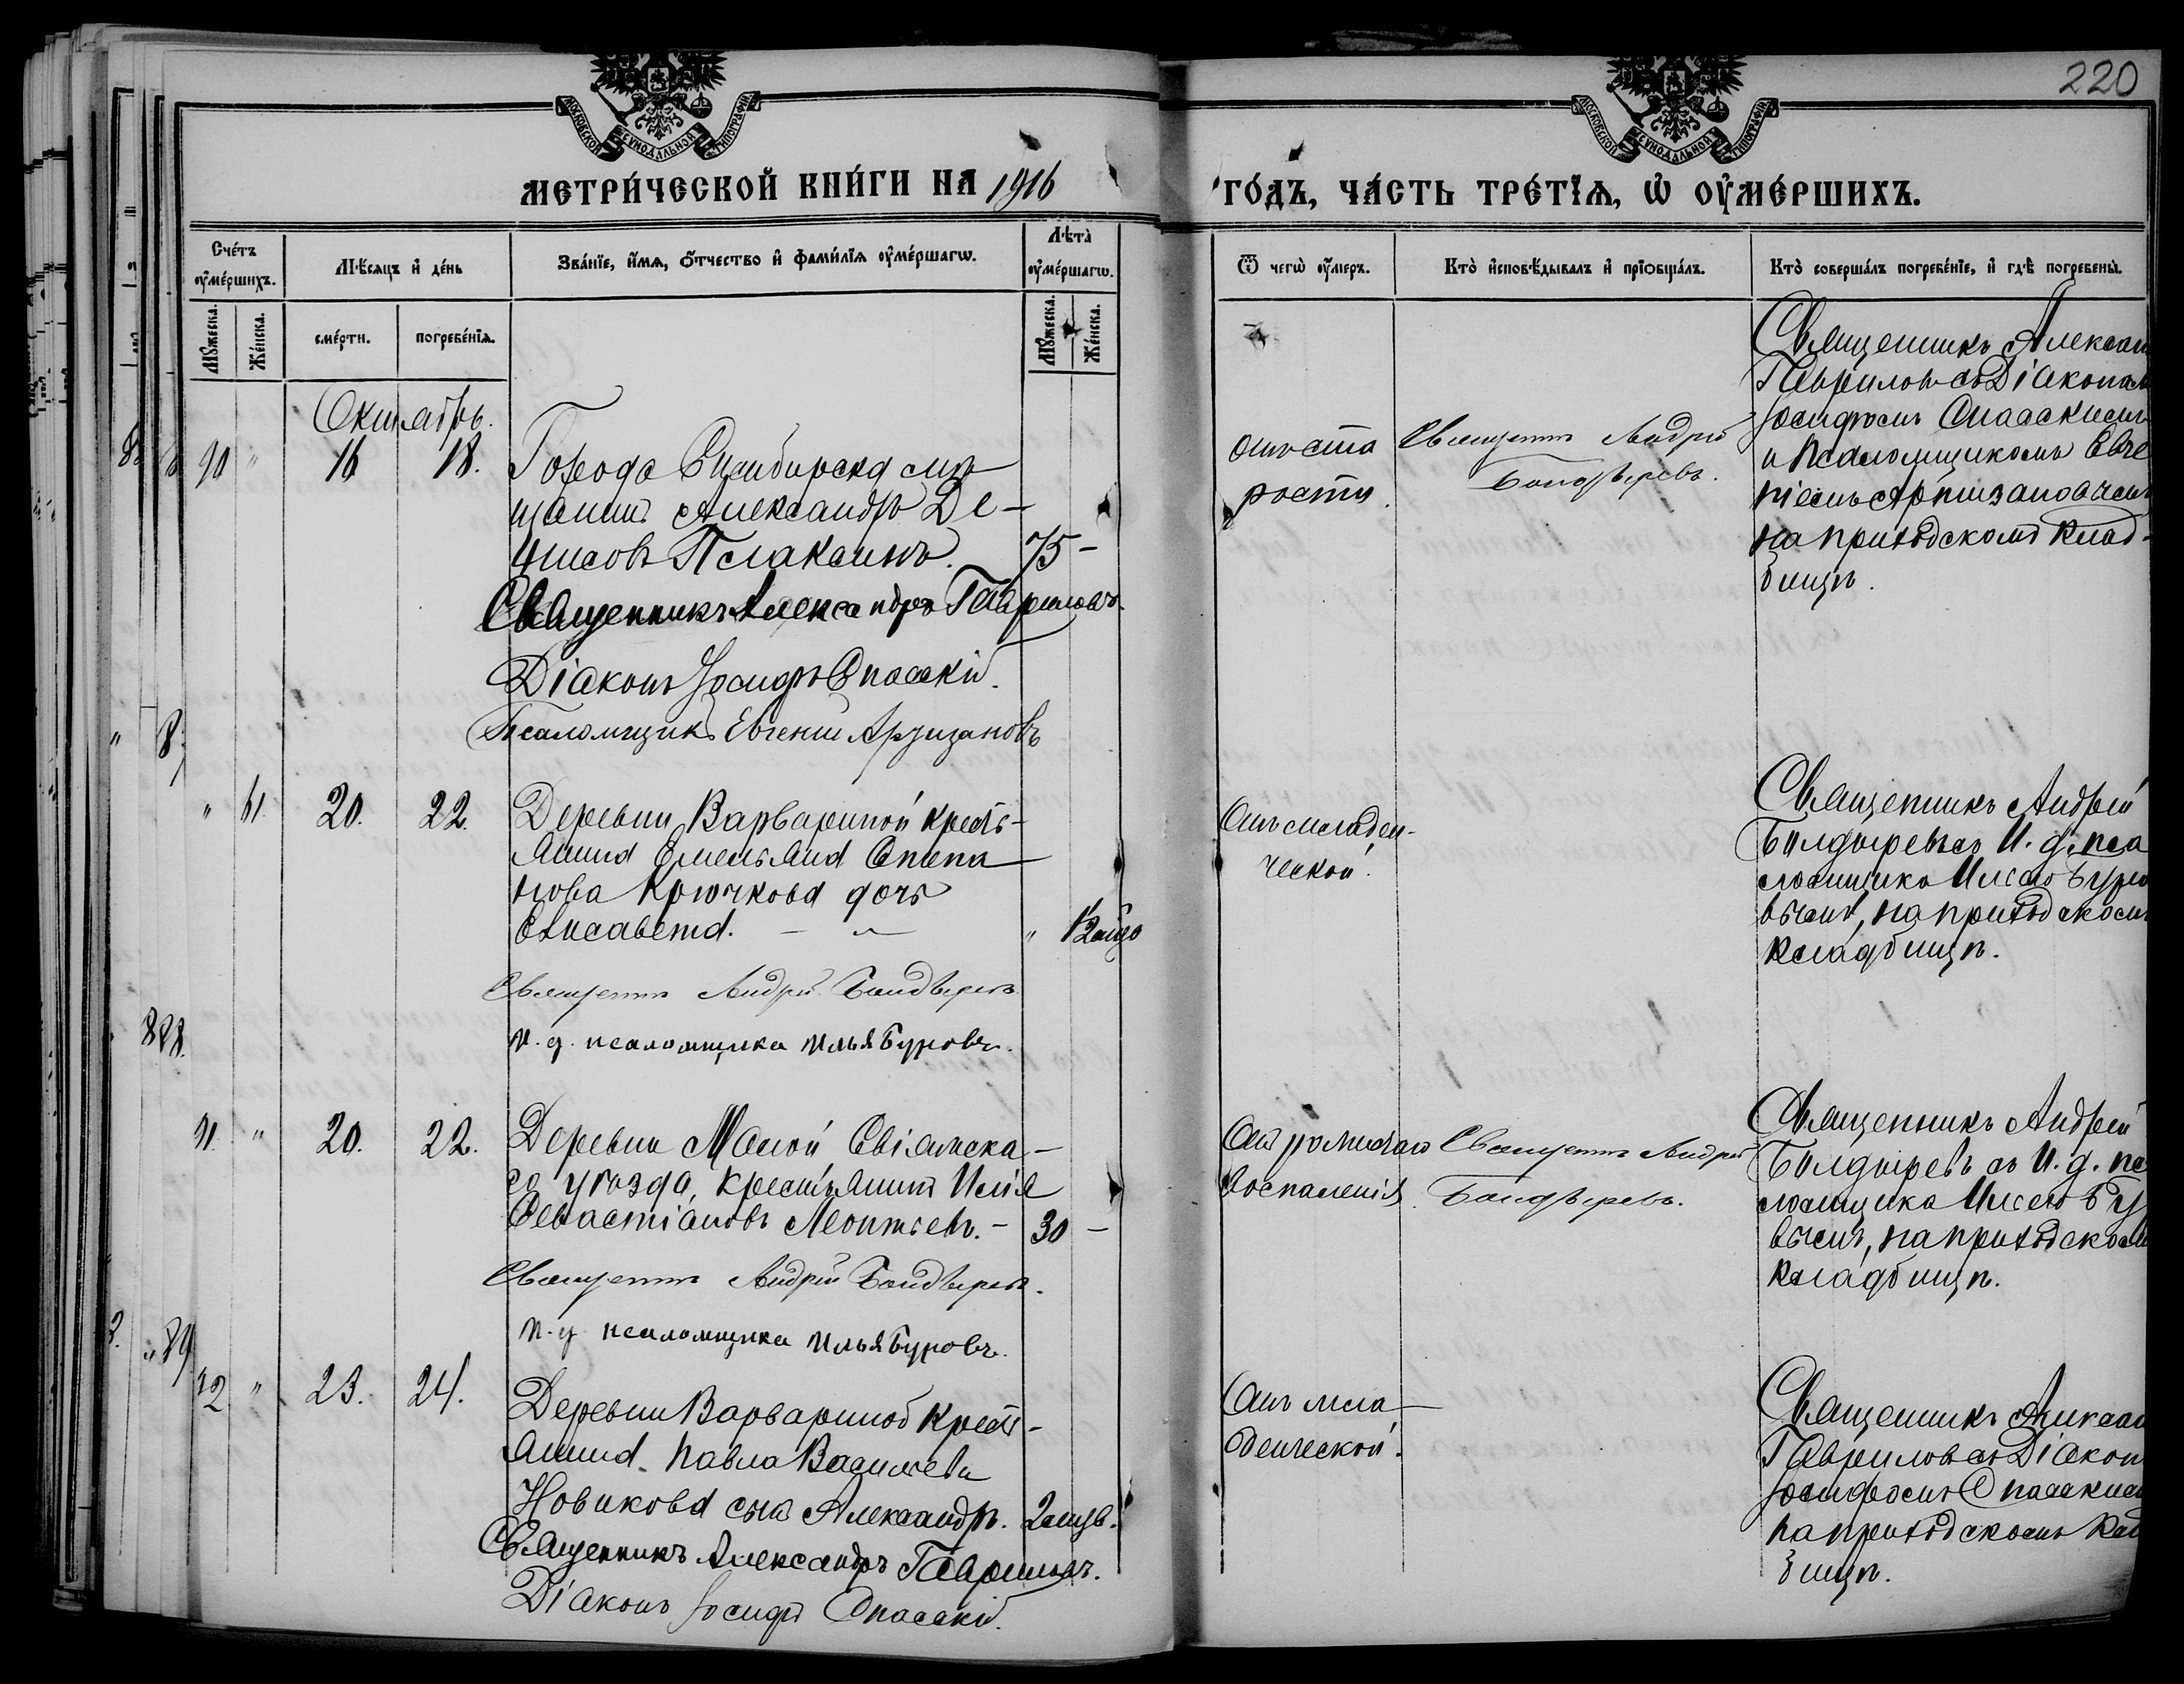 220
МОСКОВСКОЙ СѴНОДАЛЬНОЙ ТИПОГРАФІИ.
МОСКОВСКОЙ СѴНОДАЛЬНОЙ ТИПОГРАФІИ.
МЕТРИ́ЧЕСКОЙ КНИ́ГИ НА 1916
ГО́ДЪ, ЧА́СТЬ ТРЕ́ТЇѦ, Ѡ҆ ОУ҆МЕ́РШИХЪ.
Сче́тъ оу҆ме́ршихъ.
Мѣ́сѧцъ и҆ де́нь
Зва́нїе, и҆́мѧ, ѻ҆́тчество и҆ фами́лїѧ оу҆ме́ршагѡ.
Лѣ́та̀ оу҆ме́ршагѡ.
Мꙋ́жеска.
Же́нска.
сме́рти.
погребе́нїѧ.
Мꙋ́жеска.
Же́нска.
Ѿ чегѡ̀ оу҆́меръ.
Кто̀ и҆сповѣ́дывалъ и҆ прїѡбща́лъ.
Кто̀ соверша́лъ погребе́нїе, и҆ гдѣ̀ погребены̀.
Октябрь.
90 " 16 18.
Города Симбирска мѣ-
щанинъ Александръ Де-
нисовъ Плаксинъ. 75 -
Священникъ Александръ Гавриловъ.
Діаконъ Іосифъ Спасскій.
Псаломщикъ Евгеній Арзизановъ
отъ ста
рости.
Священникъ Андрей
Болдыревъ.
Священникъ Алексан
Гавриловъ съ Діакономъ
Іосифомъ Спасскимъ
и Псаломщикомъ Евге
ніемъ Арзизановымъ
на приходскомъ клад-
бищѣ.
" 61. 20. 22.
Деревни Варвариной кресть-
янина Емельяна Степа
нова Крючкова дочь
Елисавета. - " 12 дней
Священникъ Андрей Болдыревъ
И. д. псаломщика Илья Буровъ.
Отъ младен-
ческой.
Священникъ Андрей
Болдыревъ съ И. д. пса
ломщика Ильею Буро
вымъ, на приходскомъ
кладбищѣ.
91. " 20. 22.
Деревни Малой Свіяжска-
го уѣзда, крестьянинъ Илія
Севастіановъ Леонтьевъ. - 30 -
Священникъ Андрей Болдыревъ.
И. д. псаломщика Илья Буровъ.
Священникъ Андрей
воспаленія. Болдыревъ.
Священникъ Андрей
Болдыревъ съ И. д. пса
ломщика Ильею Бу
вымъ, на приходском
кладбищѣ.
92 " 23. 24.
Деревни Варвариной кресть-
янина Павла Васильева
Новикова сынъ Александръ. 2 мѣс.
Священникъ Александръ Гавриловъ.
Діаконъ Іосифъ Спасскій.
Отъ мла-
денческой.
Священникъ Алексан
Гавриловъ съ Діакон
Іосифомъ Спасским
на приходскомъ клад
бищѣ.